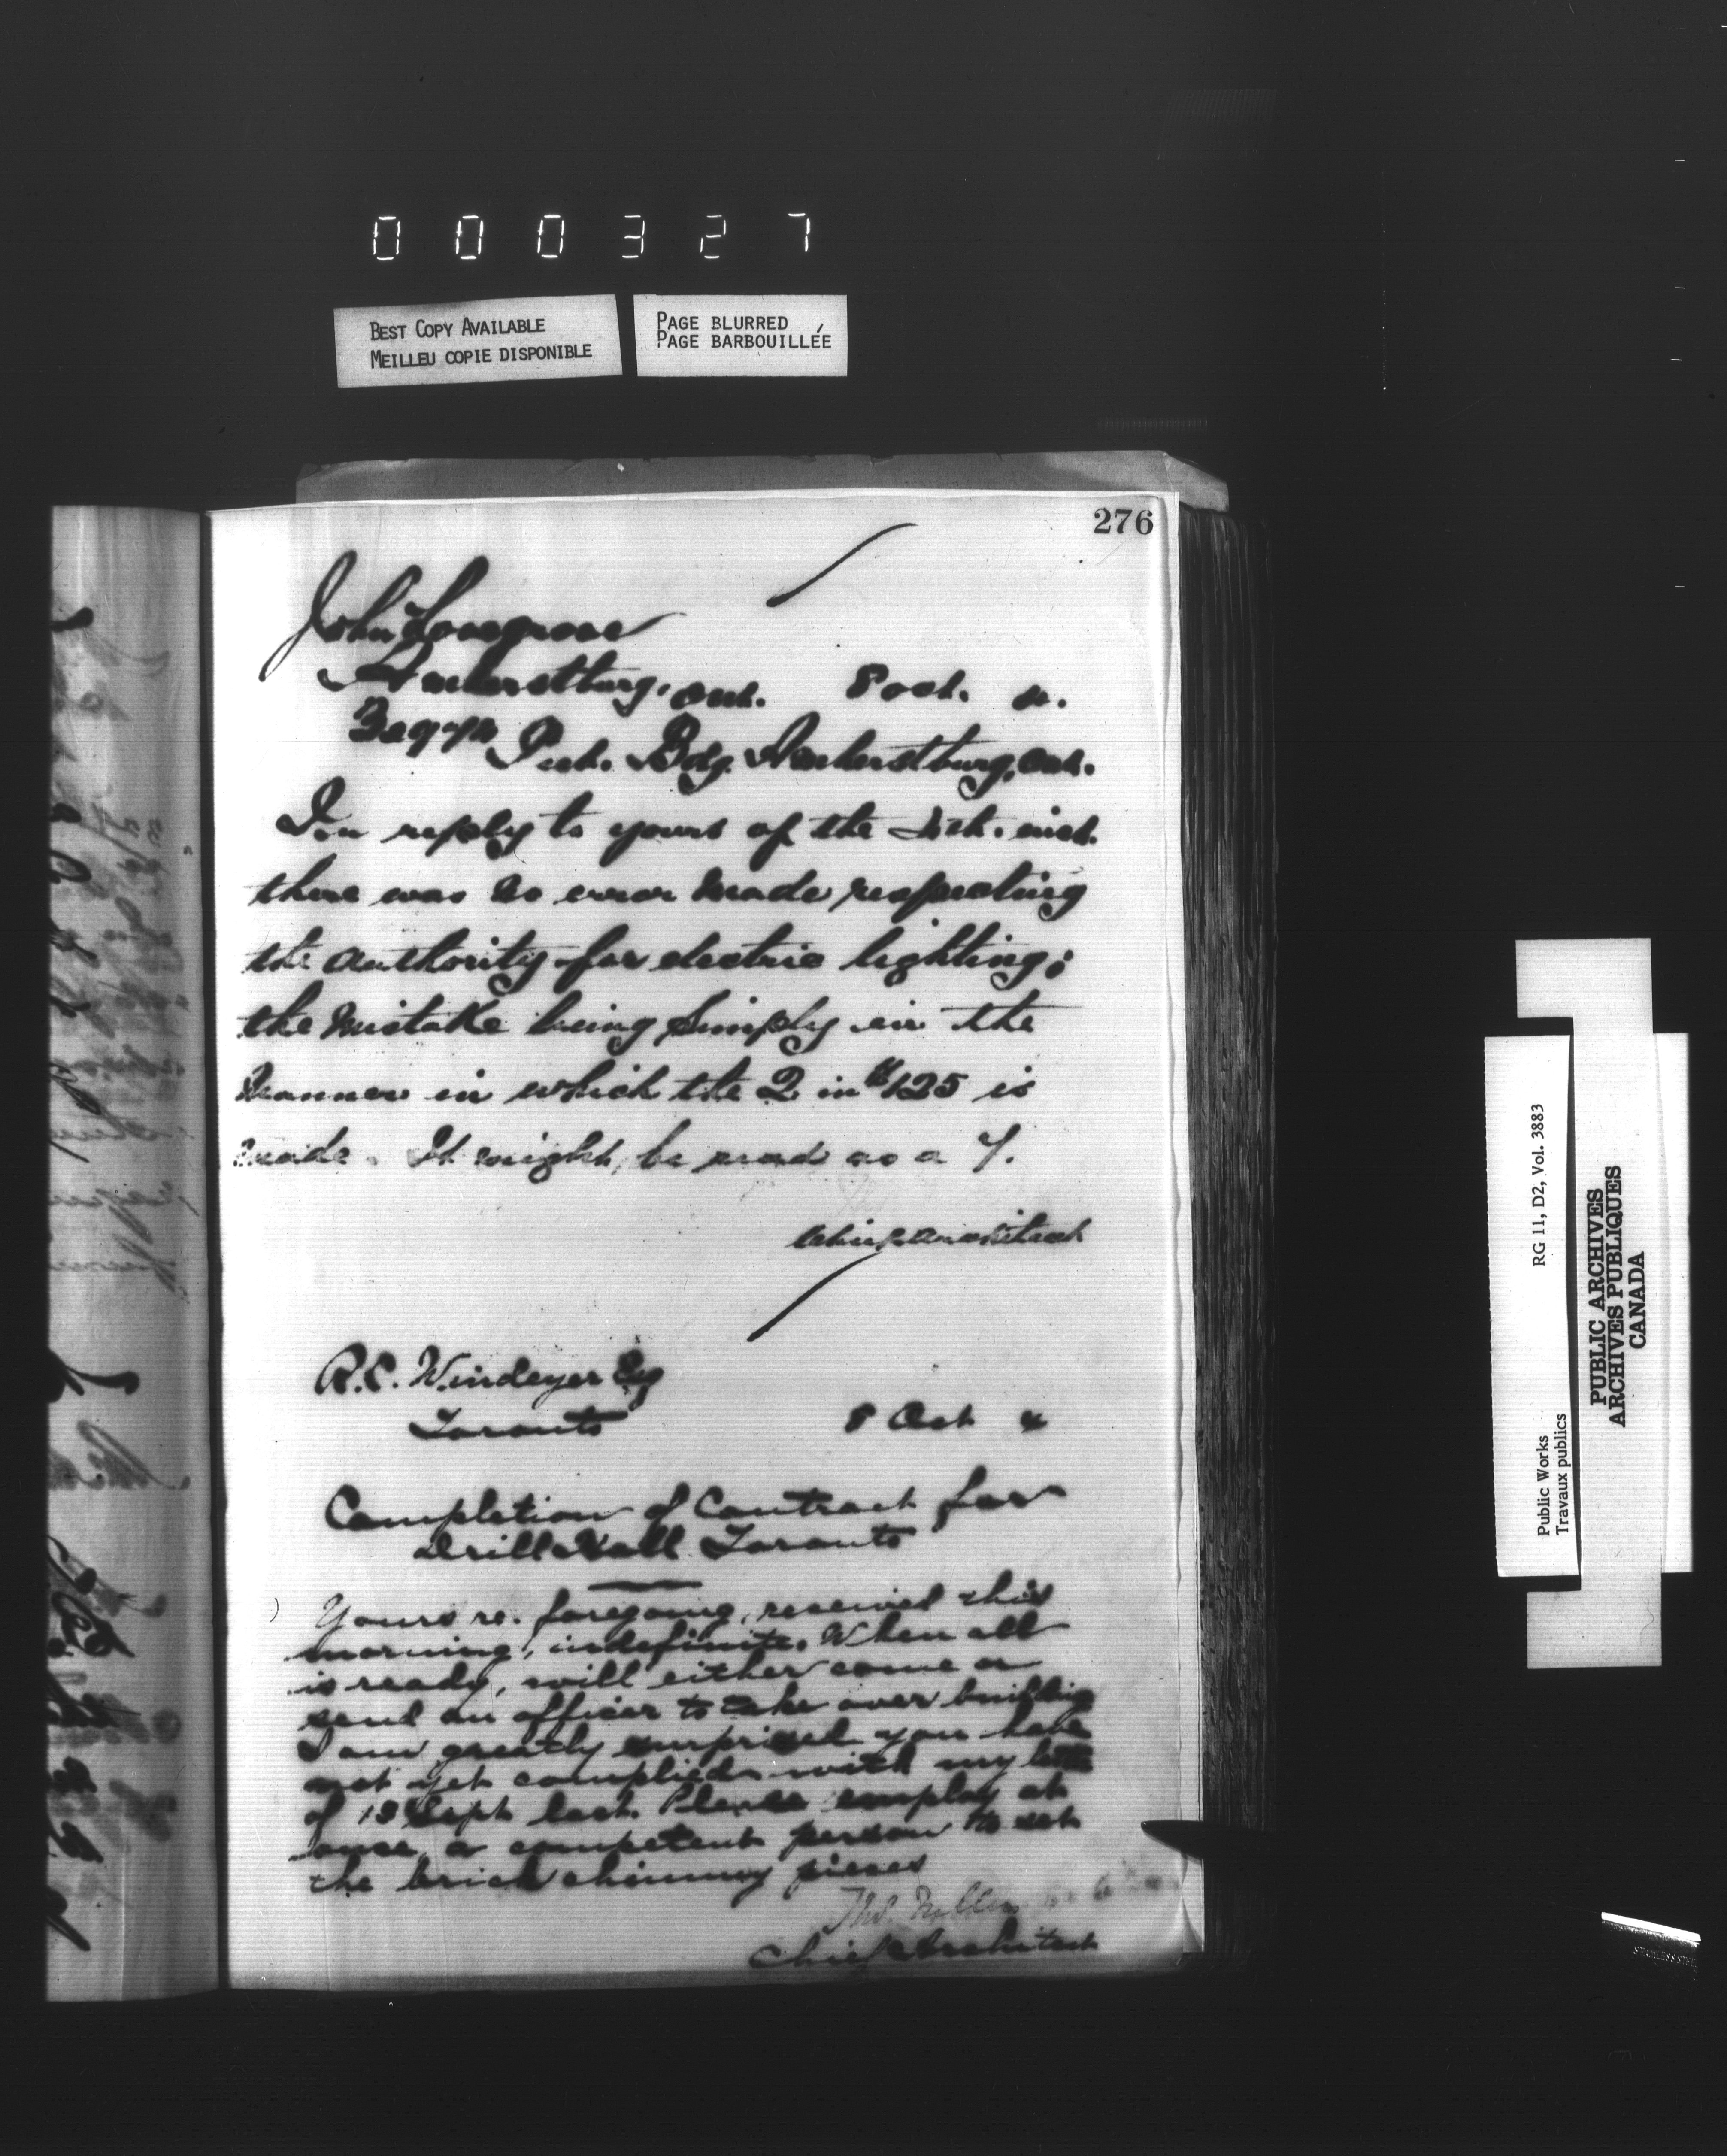 000327
BEST COPY AVAILABLE
MEILLEU COPIE DISPONIBLE
PAGE BLURRED
PAGE BARBOUILLÉE
276
John Lovegrove
Amherstburg, Ont. 8 Oct. 4.
Pub. Bdg. Amherstburg, Ont.
In reply to yours of the inst.
there was no error made respecting
the authority for electric lighting;
the mistake being simply in the
manner in which the 2 in $125 is
made. It might be read as a 7.
Chief Architect
R.C. Windeyer Esq
Toronto 8 Oct 4
Completion of Contract for
Drill Hall Toronto
Yours re. foregoing, received this
morning, indefinite. When all
is ready, will either come or
send an officer to take over building
I am greatly surprised you have
not yet complied with my letter
of 13 Sept last. Please employ at
once a competent person to set
the brick chimney pieces
Chief Architect
Public Works
Travaux publics
RG 11, D2, Vol. 3883
PUBLIC ARCHIVES
ARCHIVES PUBLIQUES
CANADA